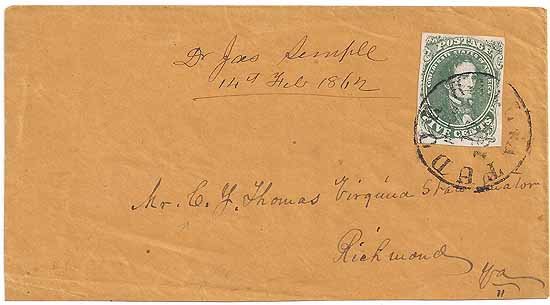 Dr Jas Semple
14th Feb 1862
POSTAGE
CONFEDERATE STATES
FIVE CENTS
Mr. C. J. Thomas Virginia State Senator
Richmond
Va